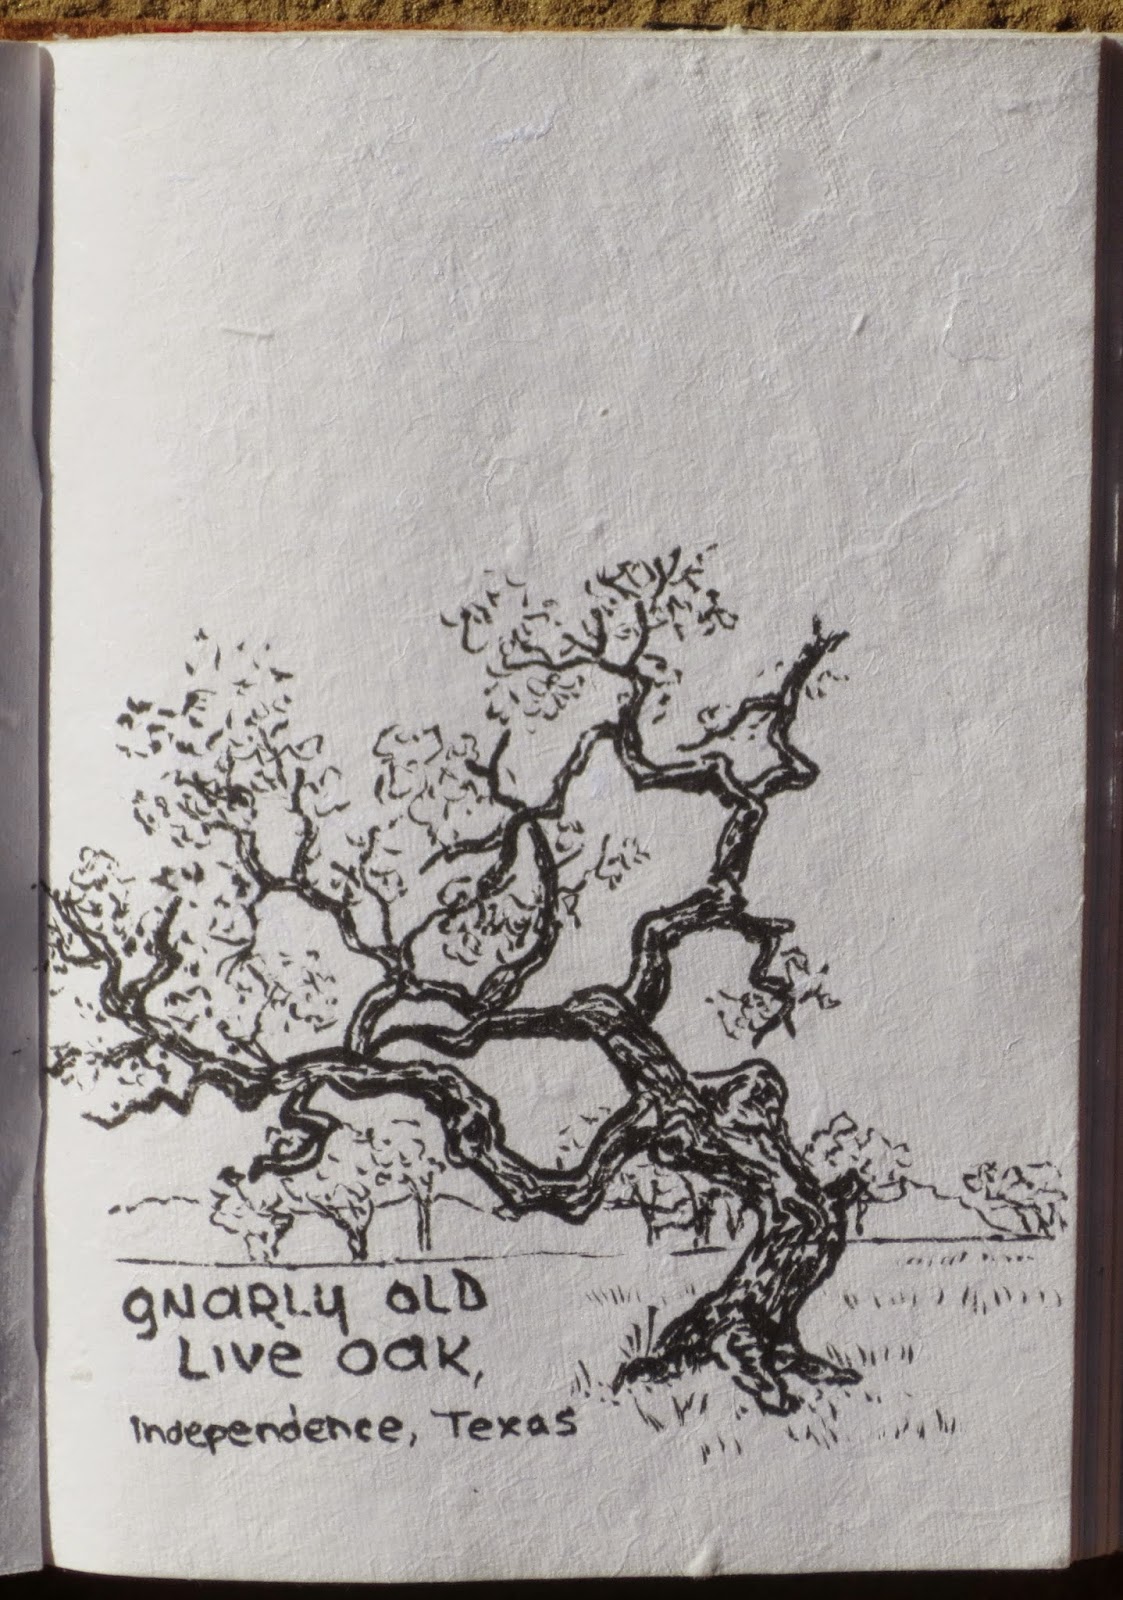 gNaRLy OLD
Live oak,
Independence, Texas